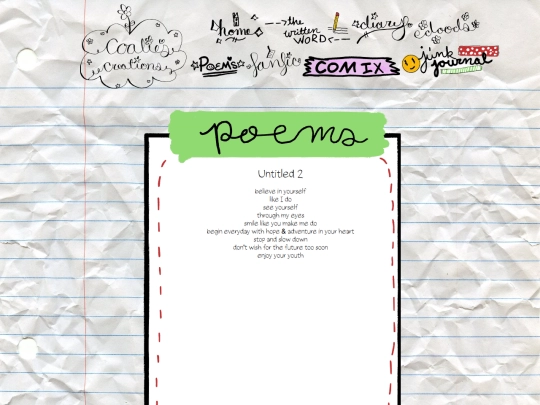 Coalies
Creations
home
--->the
written
WORD<---
diary
doods
POEMS
fanfic
COMIX
junk
journal
poems
Untitled 2
believe in yourself
like I do
see yourself
through my eyes
smile like you make me do
begin everyday with hope & adventure in your heart
stop and slow down
don't wish for the future too soon
enjoy your youth